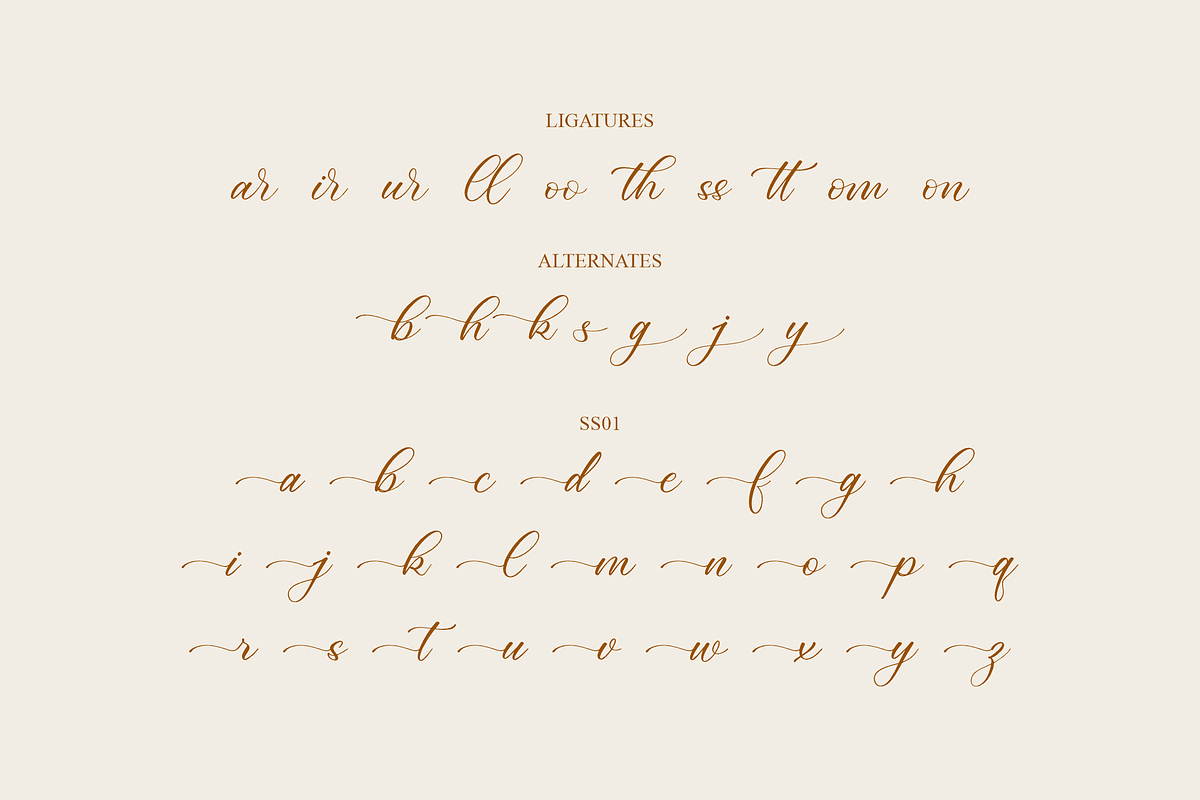 LIGATURES
ar ir ur ll oo th ss tt om on
ALTERNATES
b h k s g j y
SS01
a b c d e f g h
i j k l m n o p q
r s t u v w x y z